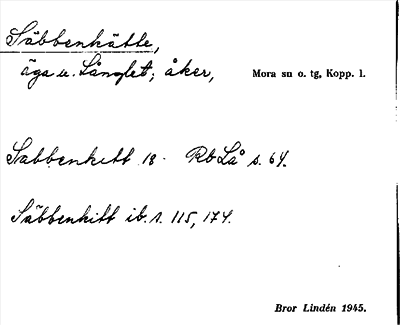 Säbbenkätte,
äga u. Långlet; åker, Mora sn o. tg, Kopp. l.
Sabbenkitt 18 - Rb Lå s. 64.
Säbbenkitt ib. s. 115, 174.
Bror Lindén 1945.